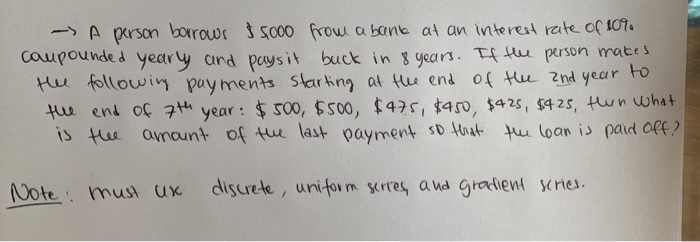 → A person borrows $5000 from a bank at an interest rate of 10%
compounded yearly and pays it back in 8 years. If the person makes
the following payments starting at the end of the 2nd year to
the end of 7th year: $500, $500, $475, $450, $425, $425, then what
is the amount of the last payment so that the loan is paid off?
Note: must use discrete, uniform series, and gradient series.